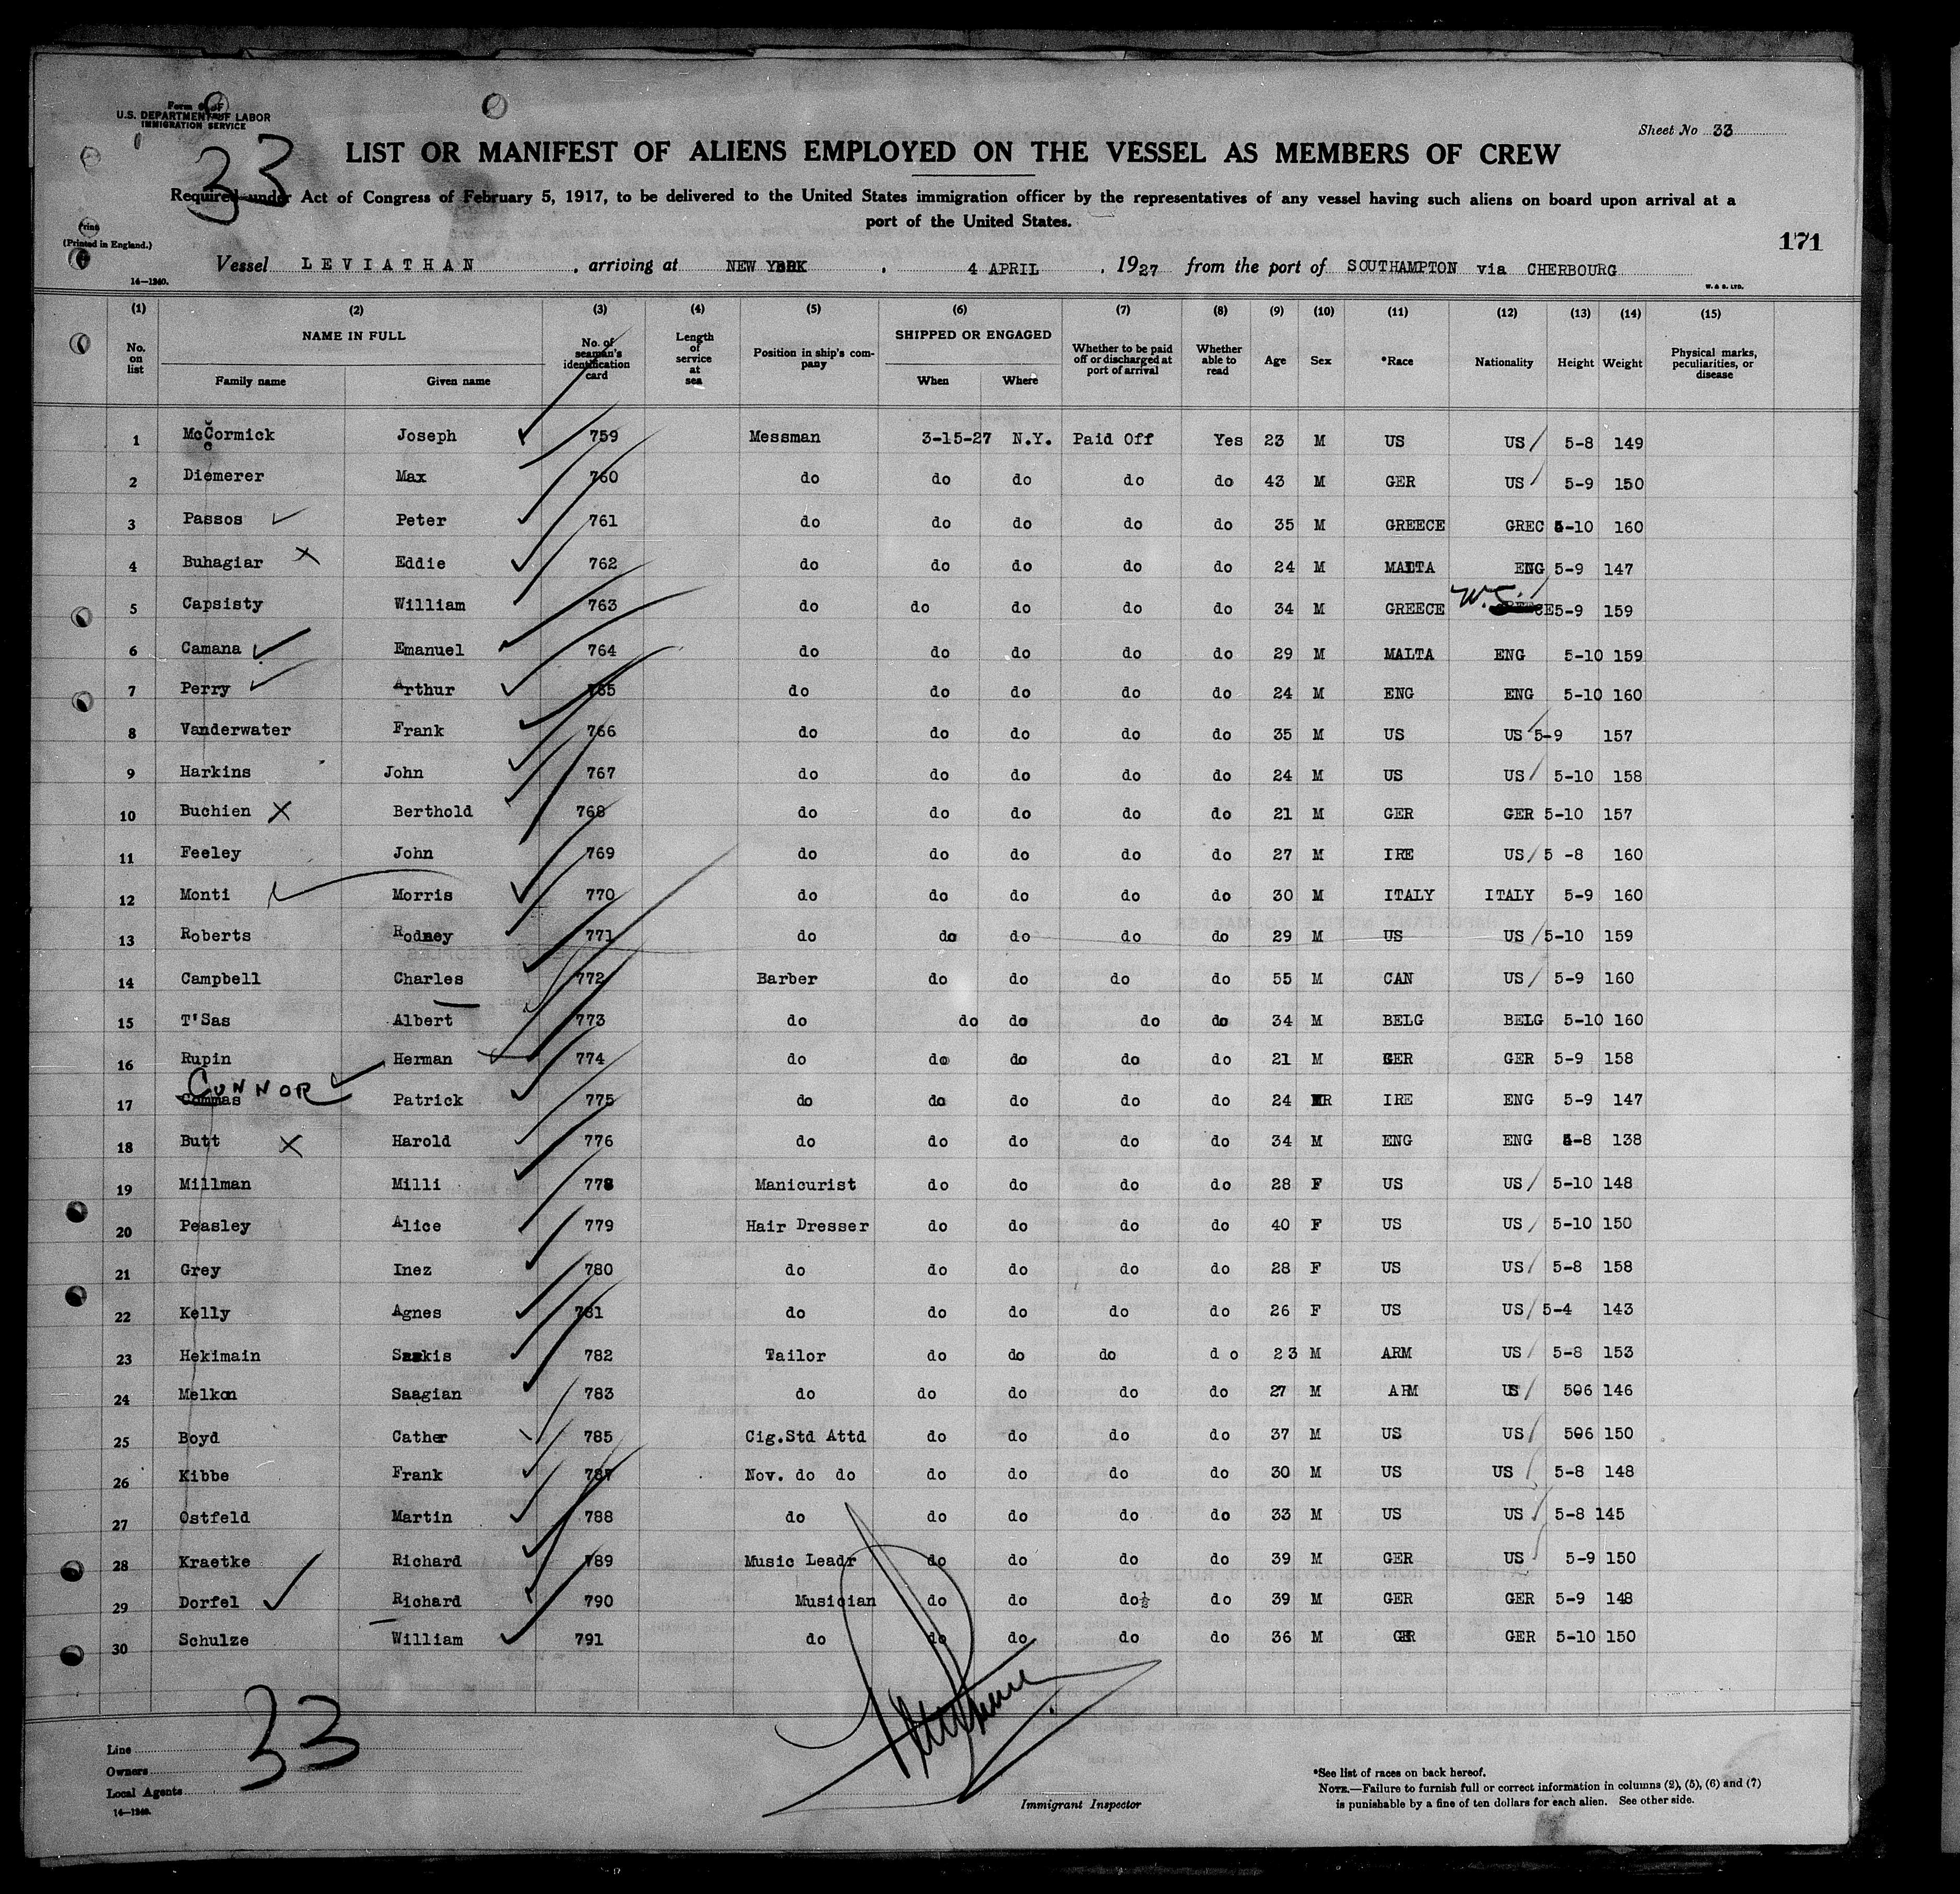 Form 689
U.S. DEPARTMENT OF LABOR
IMMIGRATION SERVICE
Sheet No 33
33
LIST OR MANIFEST OF ALIENS EMPLOYED ON THE VESSEL AS MEMBERS OF CREW
Required under Act of Congress of February 5, 1917, to be delivered to the United States immigration officer by the representatives of any vessel having such aliens on board upon arrival at a
port of the United States.
(Printed in England.)
171
Vessel LEVIATHAN, arriving at NEW YORK, 4 APRIL, 1927 from the port of SOUTHAMPTON via CHERBOURG
14—1240.
W. & S. LTD.
(1) (2) (3) (4) (5) (6) (7) (8) (9) (10) (11) (12) (13) (14) (15)
No. on list NAME IN FULL Family name Given name No. of seaman's identification card Length of service at sea Position in ship's company SHIPPED OR ENGAGED When Where Whether to be paid off or discharged at port of arrival Whether able to read Age Sex *Race Nationality Height Weight Physical marks, peculiarities, or disease
1 McCormick Joseph 759 Messman 3-15-27 N.Y. Paid Off Yes 23 M US US 5-8 149
2 Diemerer Max 760 do do do do do 43 M GER US 5-9 150
3 Passos Peter 761 do do do do do 35 M GREECE GREC 5-10 160
4 Buhagiar Eddie 762 do do do do do 24 M MALTA ENG 5-9 147
5 Capsisty William 763 do do do do do 34 M GREECE U.S. GREECE 5-9 159
6 Camana Emanuel 764 do do do do do 29 M MALTA ENG 5-10 159
7 Perry Arthur 765 do do do do do 24 M ENG ENG 5-10 160
8 Vanderwater Frank 766 do do do do do 35 M US US 5-9 157
9 Harkins John 767 do do do do do 24 M US US 5-10 158
10 Buchien Berthold 768 do do do do do 21 M GER GER 5-10 157
11 Feeley John 769 do do do do do 27 M IRE US 5 -8 160
12 Monti Morris 770 do do do do do 30 M ITALY ITALY 5-9 160
13 Roberts Rodney 771 do do do do do 29 M US US 5-10 159
14 Campbell Charles 772 Barber do do do do 55 M CAN US 5-9 160
15 T'Sas Albert 773 do do do do do 34 M BELG BELG 5-10 160
16 Rupin Herman 774 do do do do do 21 M GER GER 5-9 158
CONNOR
17 Commas Patrick 775 do do do do do 24 MR IRE ENG 5-9 147
18 Butt Harold 776 do do do do do 34 M ENG ENG 5-8 138
19 Millman Milli 778 Manicurist do do do do 28 F US US 5-10 148
20 Peasley Alice 779 Hair Dresser do do do do 40 F US US 5-10 150
21 Grey Inez 780 do do do do do 28 F US US 5-8 158
22 Kelly Agnes 781 do do do do do 26 F US US 5-4 143
23 Hekimain Saskis 782 Tailor do do do d o 23 M ARM US 5-8 153
24 Melkon Saagian 783 do do do do do 27 M ARM US 506 146
25 Boyd Cather 785 Cig.Std Attd do do do do 37 M US US 506 150
26 Kibbe Frank 787 Nov. do do do do do do 30 M US US 5-8 148
27 Ostfeld Martin 788 do do do do do 33 M US US 5-8 145
28 Kraetke Richard 789 Music Leadr do do do do 39 M GER US 5-9 150
29 Dorfel Richard 790 Musician do do do½ do 39 M GER GER 5-9 148
30 Schulze William 791 do do do do do 36 M GER GER 5-10 150
33
Line
Owners
Local Agents
14—1240.
Immigrant Inspector
*See list of races on back hereof.
NOTE.—Failure to furnish full or correct information in columns (2), (5), (6) and (7)
is punishable by a fine of ten dollars for each alien. See other side.